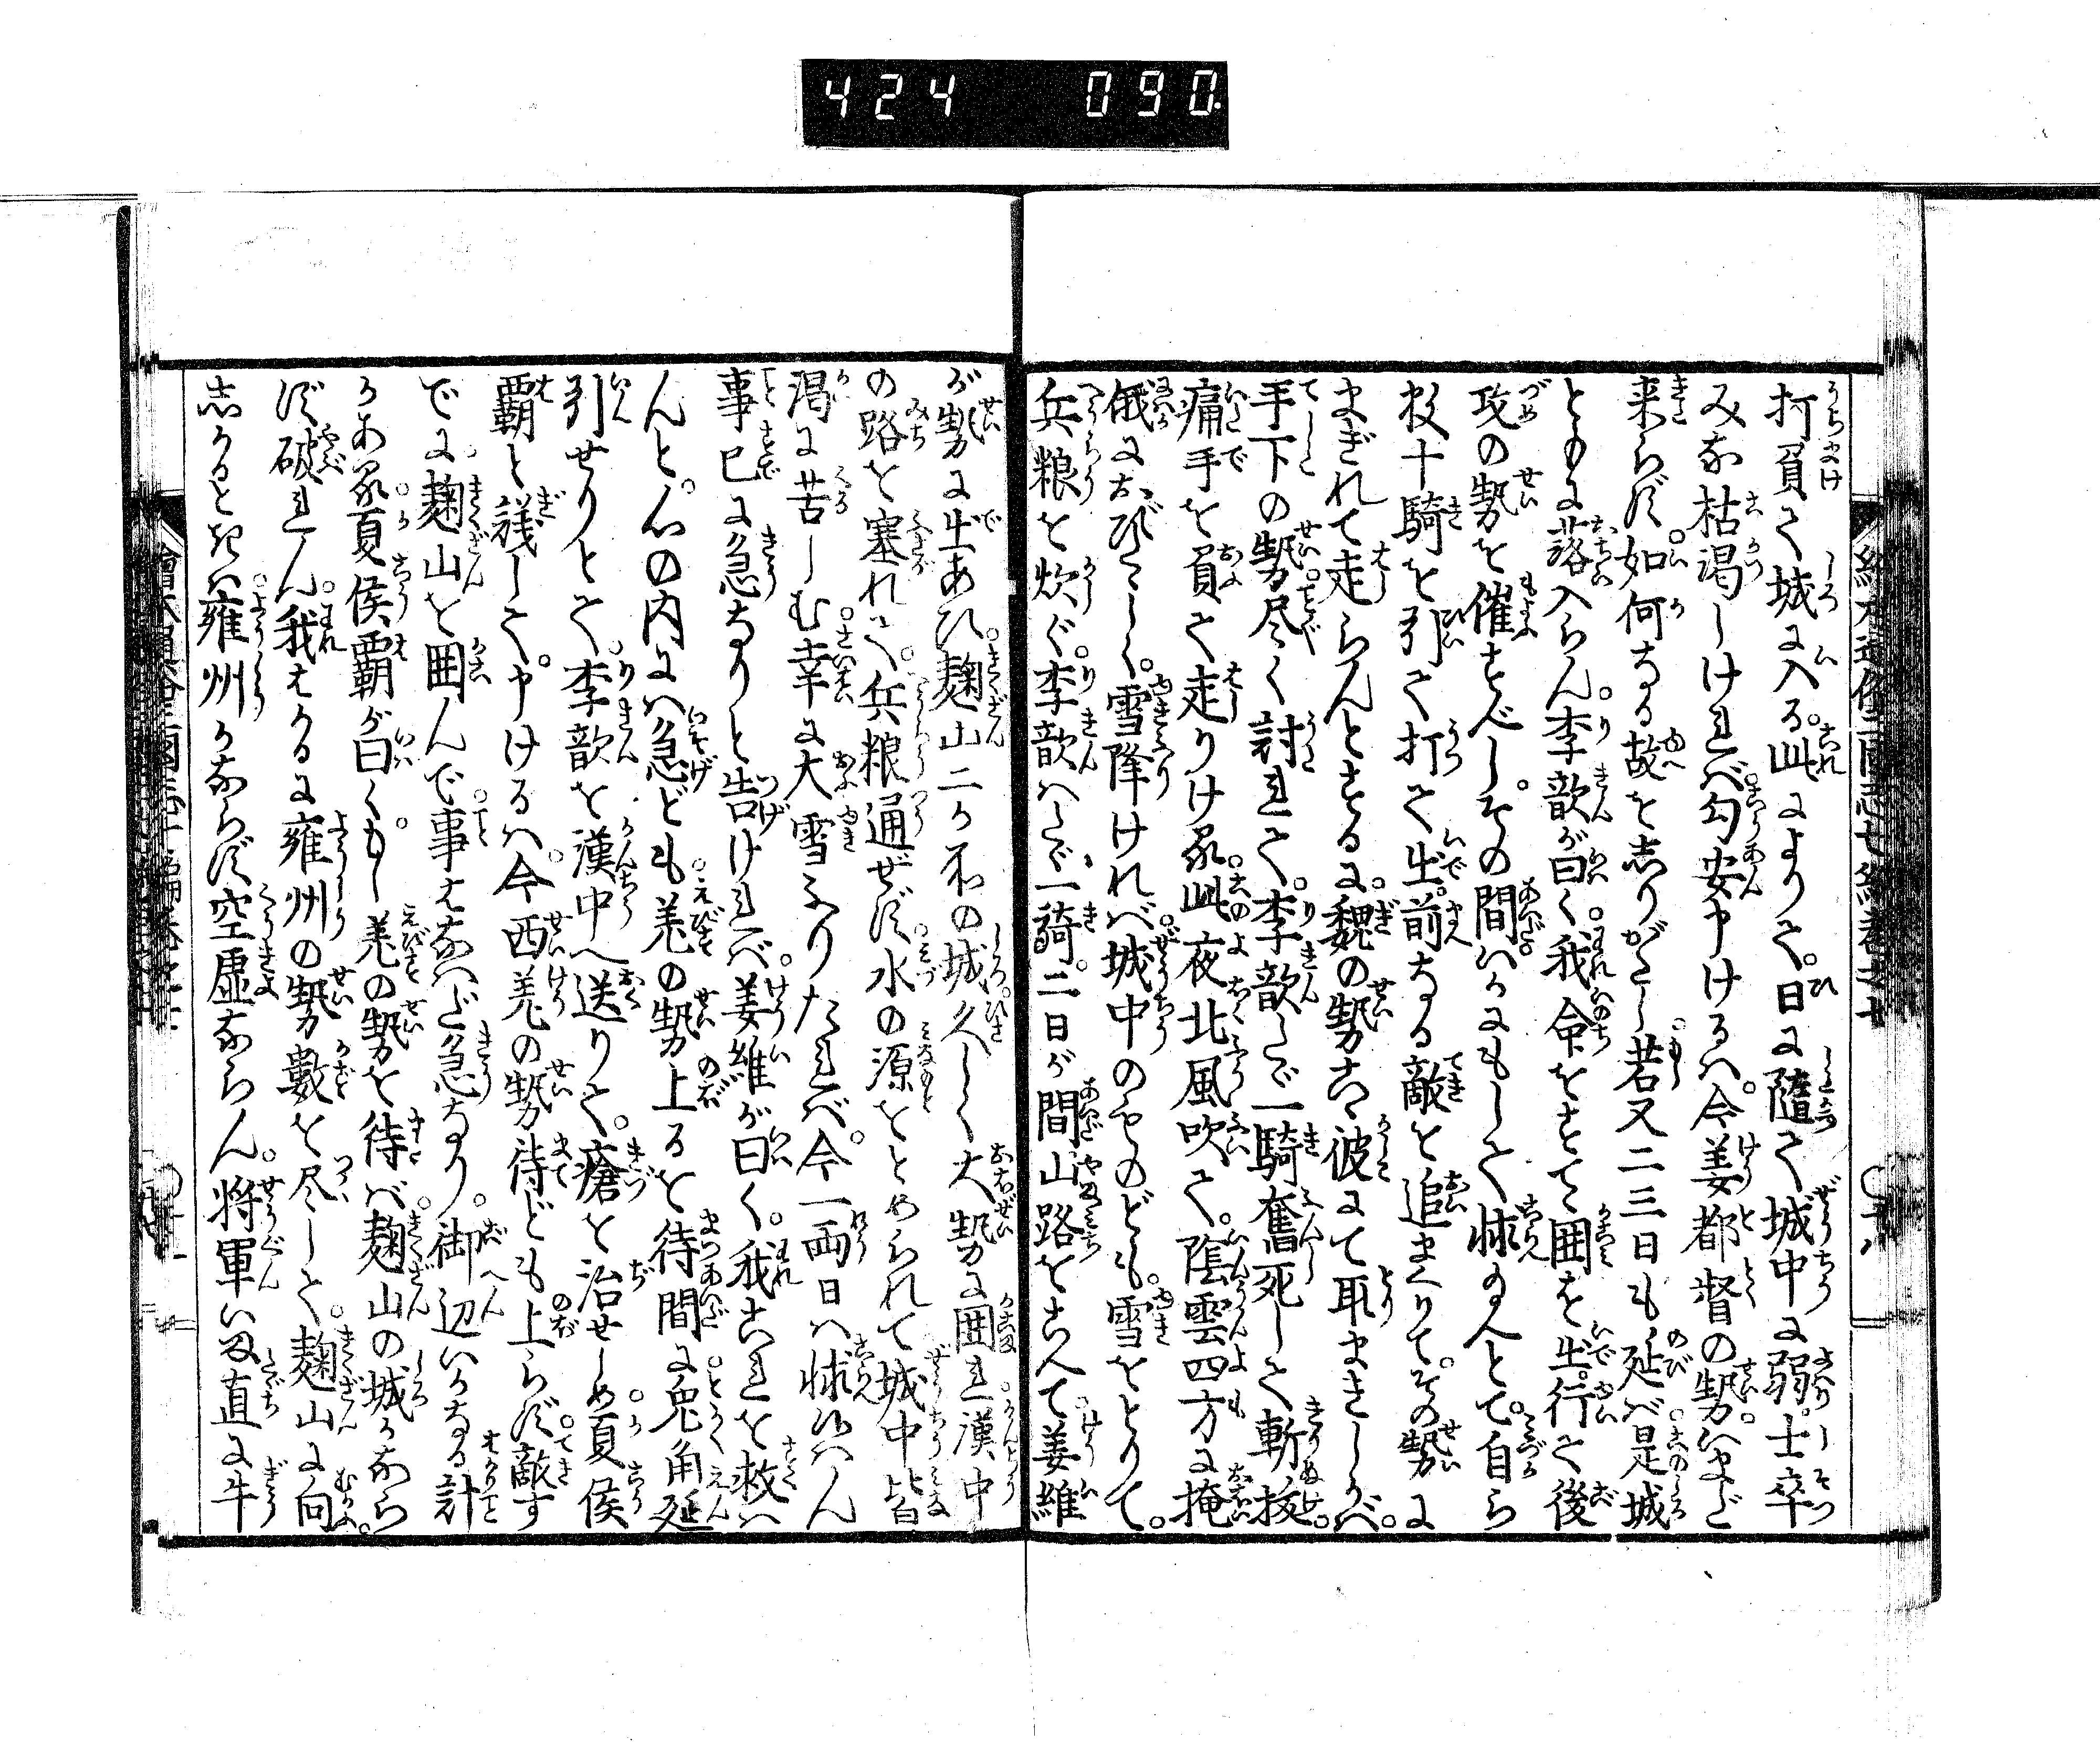 424 090
打負て城に入る。此によりて。日に随て城中に弱。士卒
みな枯渇しければ。勾安申けるハ。今姜都督の勢。いまだ
来らず。如何なる故を志りがたし。若又二三日も延バ。是城
ともに落入らん。李歆が曰く。我命をすてて囲を出。行て後
攻の勢を催すべし。その間いかにもして怺給へとて。自ら
数十騎を引て打て出。前なる敵を追まくりて。その勢に
まぎれて走らんとするに。魏の勢右、彼にて取まきしかバ。
手下の勢。尽く討れて。李歆たゞ一騎奮死して斬抜。
痛手を負て走りけり。此夜北風吹て。陰雲四方に掩
俄におびたゝしく。雪降ければ。城中のものども。雪をとりて。
兵粮を炊ぐ。李歆ハたゞ一騎。二日が間山路をこへて。姜維
が勢に出あひ。麹山二か所の城。久しく大勢に囲れ。漢中
の路を塞れて。兵粮通ぜず。水の源をとめられて。城中皆
渇に苦しむ。幸に大雪ふりたれバ。今一両日ハ怺候ハん
事已に急なりと告ければ。姜維が曰く。我これを救ハ
んと。心の内にハ急ども。羌の勢上るを待間に。兎角延
引せりとて。李歆を漢中へ送りて。瘡を治せしめ。夏侯
覇と議して。申けるハ。今西羌の勢待ども上らず。敵す
でに麹山を囲んで。事はなハだ急なり。御辺いかなる計
かある。夏侯覇が曰く。もし羌の勢を待バ。麹山の城かなら
ず破れん。我はかるに雍州の勢数を尽して。麹山に向ふ。
志かるときハ。雍州かならず空虚ならん。将軍いま直に牛